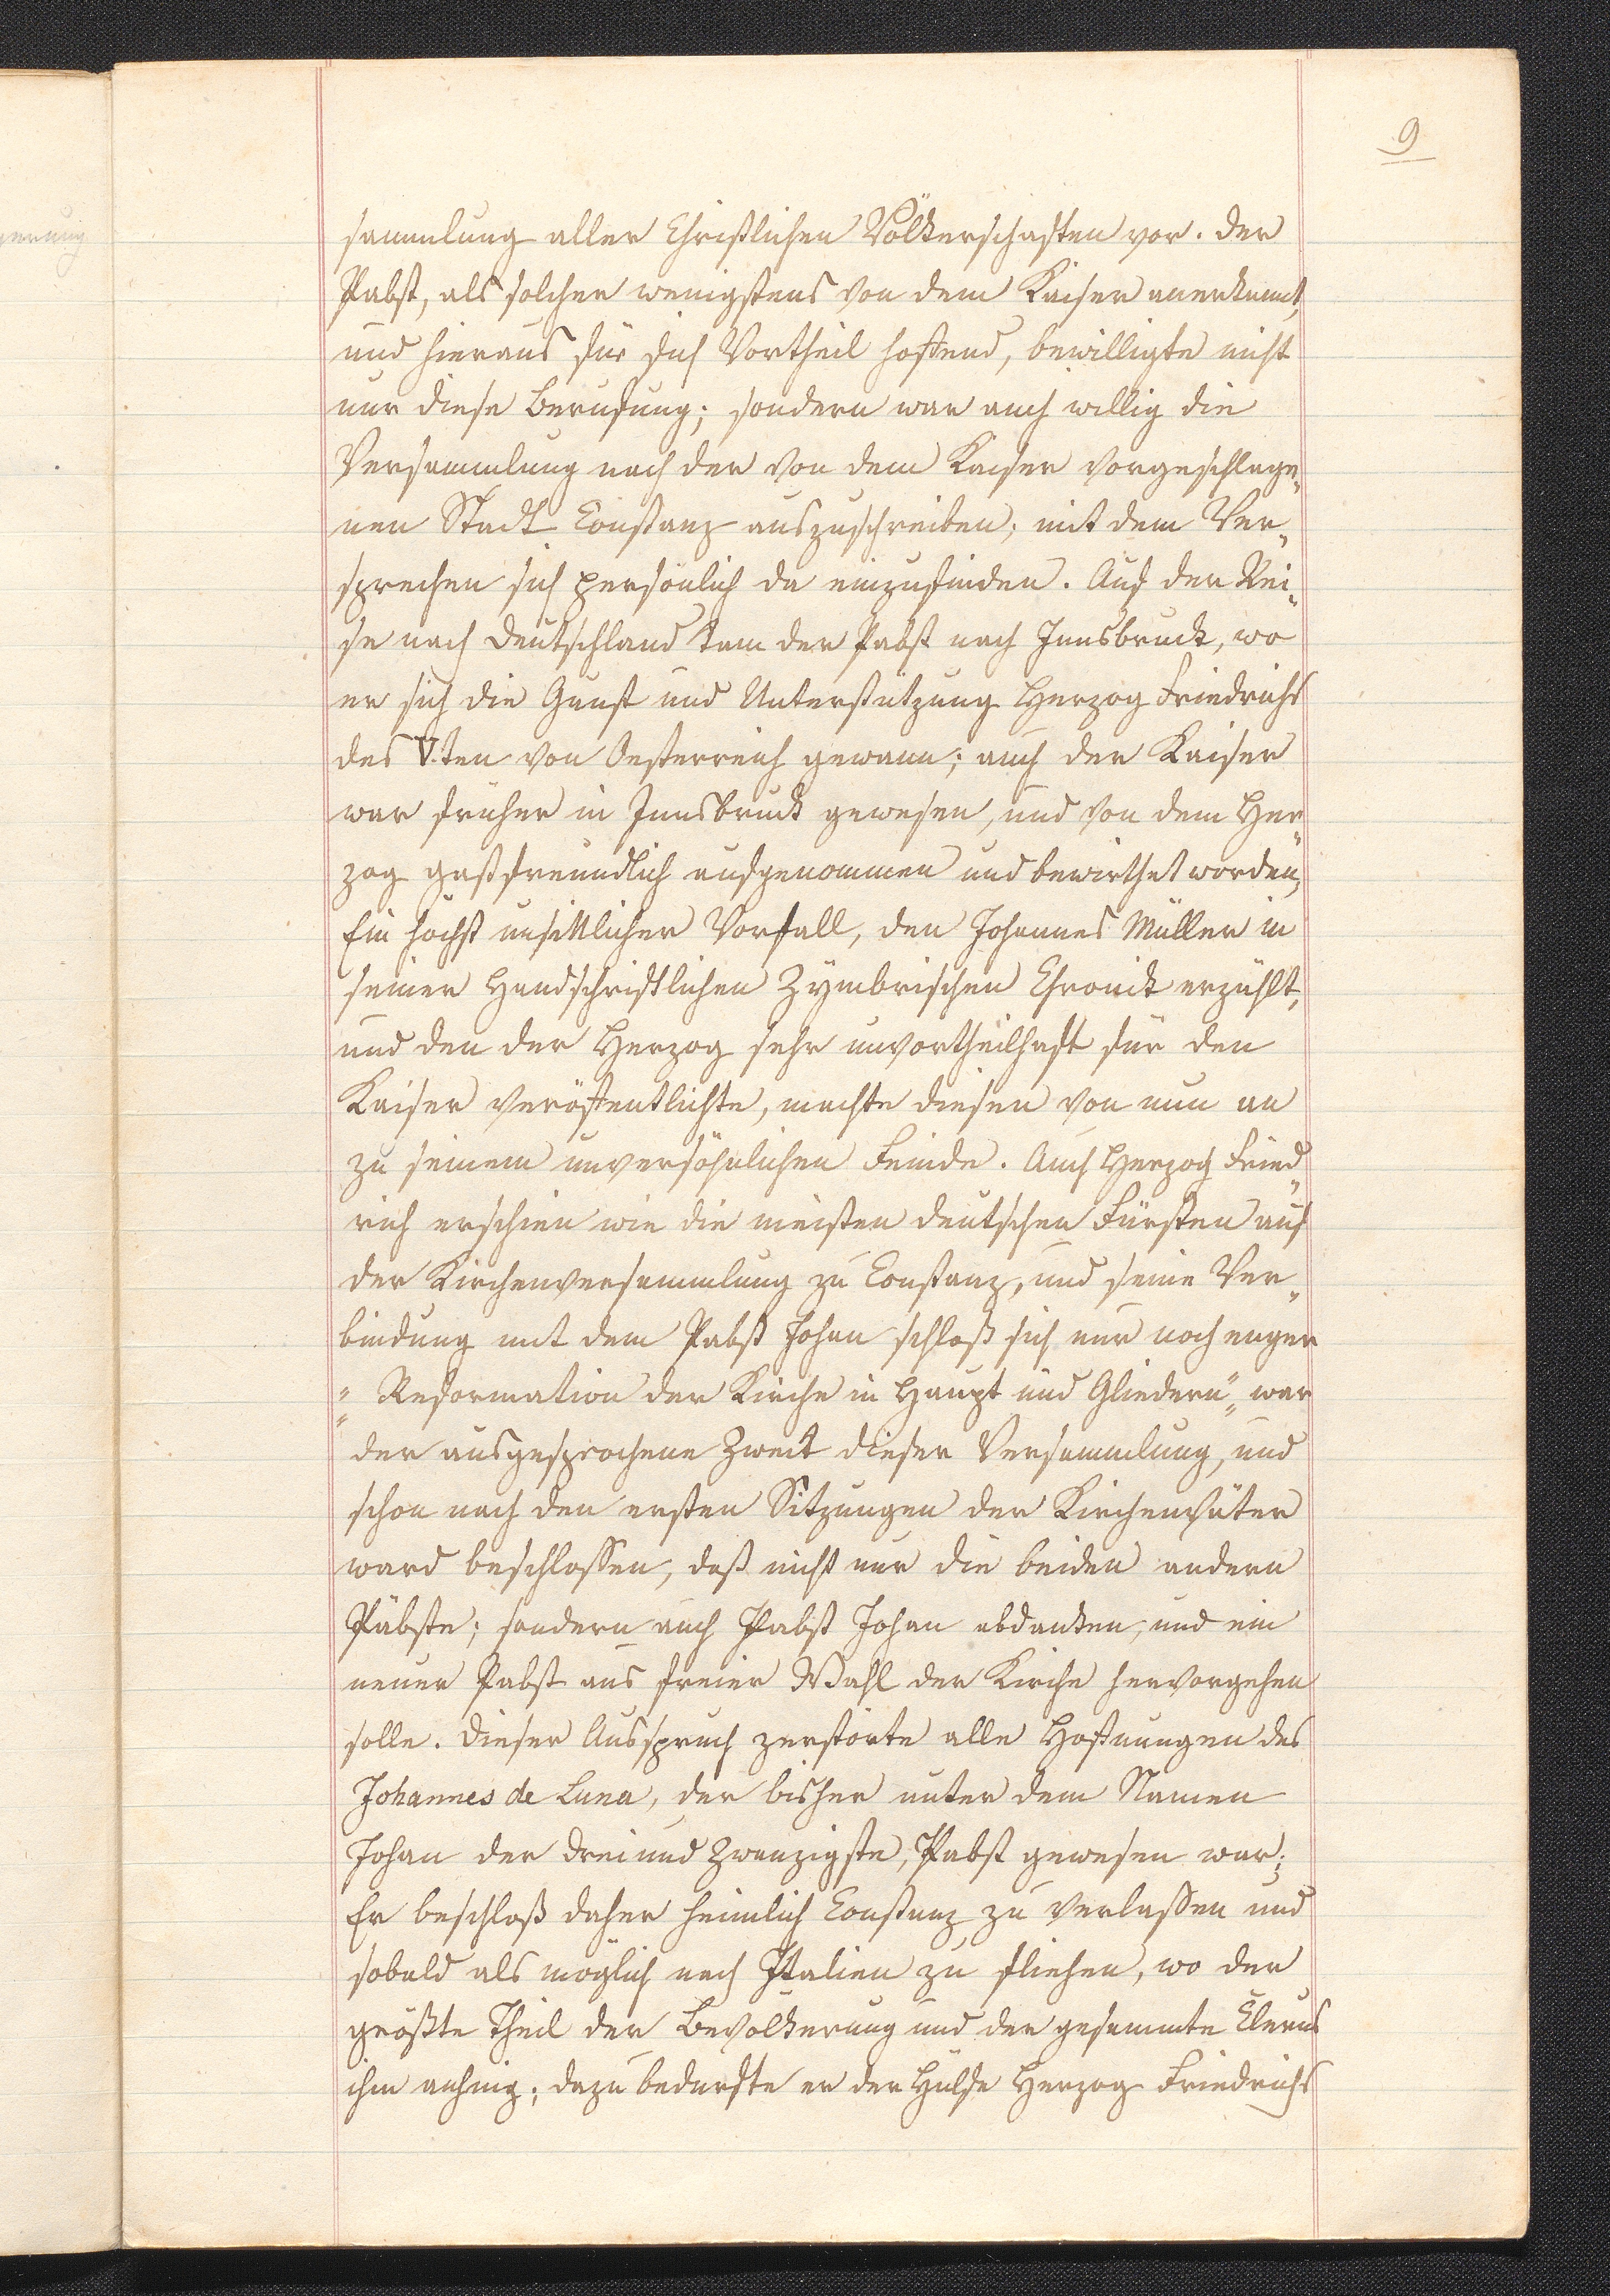 9
sammlung aller Christlichen Völkerschaften vor. Der
Pabst, als solcher wenigstens von dem Kaiser anerkannt,
und hieraus für sich Vortheil hoffend, bewilligte nicht
nur diese Berufung; sondern war auch willig die
Versammlung nach der von dem Kaiser vorgeschlage„
nen Stadt Constanz auszuschreiben; mit dem Ver„
sprechen sich persönlich da einzufinden. Auf der Rei„
se nach Deutschland kam der Pabst nach Innsbruck, wo
er sich die Gunst und Unterstützung Herzog Friedrichs
des V.ten von Oesterreich gewann; auch der Kaiser
war früher in Innsbruck gewesen, und von dem Her„
zog gastfreundlich aufgenommen und bewirthet worden,
Ein höchst unsittlicher Vorfall, den Johannes Müller in
seiner Handschriftlichen Zymbrischen Chronick erzählt,
und den der Herzog sehr unvortheilhaft für den
Kaiser veröffentlichte, machte diesen von nun an
zu seinem unversöhnlichen Feinde. Auch Herzog Fried„
rich erschien wie die meisten deutschen Fürsten auf
der Kirchenversammlung zu Constanz, und seine Ver„
bindung mit dem Pabst Johan schloß sich nur noch enger
„Reformation der Kirche in Haupt und Gliedern„ war
„der ausgesprochene Zweck dieser Versammlung, und
schon nach den ersten Sitzungen der Kirchenväter
ward beschlossen, daß nicht nur die beiden andern
Päbste; sondern auch Pabst Johan abdanken, und ein
neuer Pabst aus freier Wahl der Kirche hervorgehen
solle. Dieser Ausspruch zerstörte alle Hoffnungen des
Johannes de Luna, der bisher unter dem Namen
Johan der drei und Zwanzigste, Pabst gewesen war;
Er beschloß daher heimlich Constanz zu verlassen und
sobald als möglich nach Italien zu fliehen, wo der
größte Theil der Bevölkerung und der gesammte Clerus
ihm anhing; dazu bedurfte er der Hülfe Herzog Friedrichs